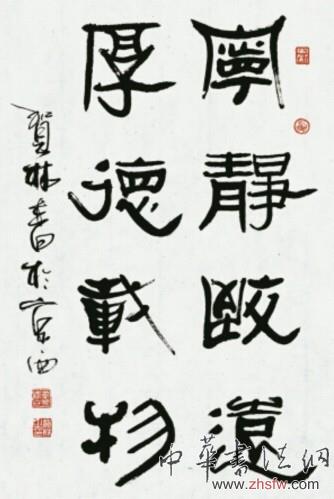 寧靜致遠
厚德載物
賀林書於京西
中華書法網
www.zhsfw.com